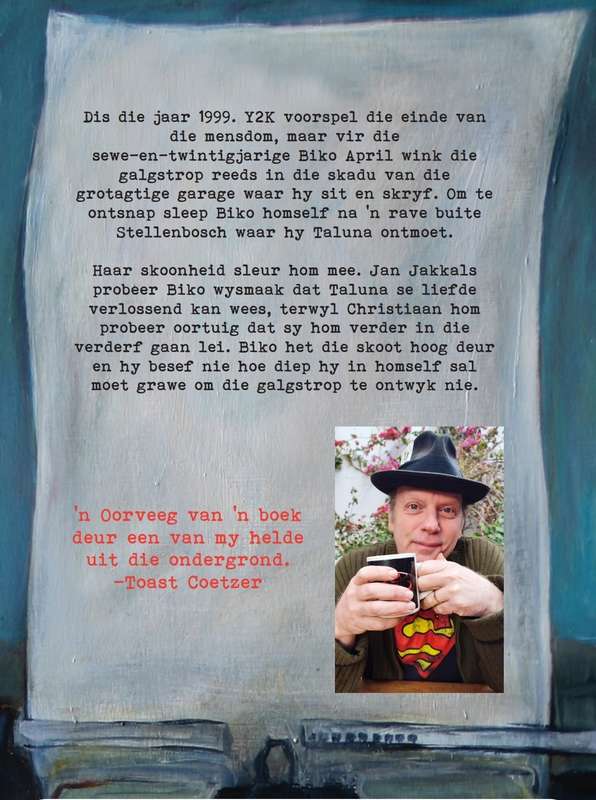 Dis die jaar 1999. Y2K voorspel die einde van
die mensdom, maar vir die
sewe-en-twintigjarige Biko April wink die
galgstrop reeds in die skadu van die
grotagtige garage waar hy sit en skryf. Om te
ontsnap sleep Biko homself na 'n rave buite
Stellenbosch waar hy Taluna ontmoet.
Haar skoonheid sleur hom mee. Jan Jakkals
probeer Biko wysmaak dat Taluna se liefde
verlossend kan wees, terwyl Christiaan hom
probeer oortuig dat sy hom verder in die
verderf gaan lei. Biko het die skoot hoog deur
en hy besef nie hoe diep hy in homself sal
moet grawe om die galgstrop te ontwyk nie.
'n Oorveeg van 'n boek
deur een van my helde
uit die ondergrond.
-Toast Coetzer